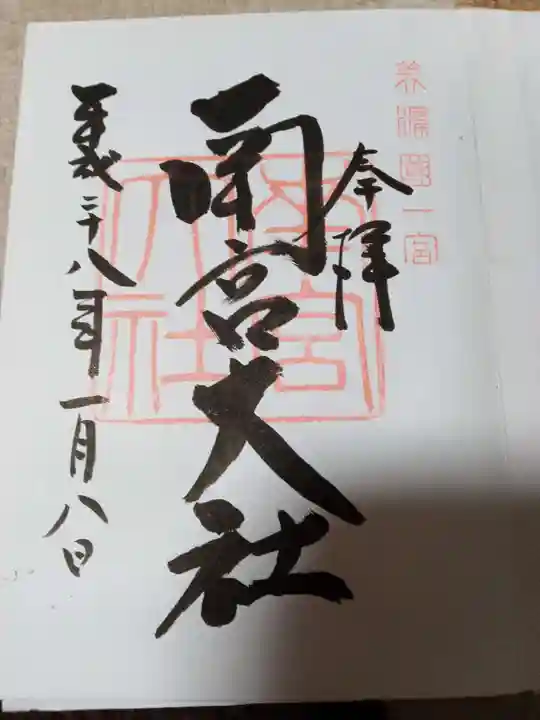 美濃國一宮
奉拝
南宮大社
南宮大社
平成二十八年一月八日